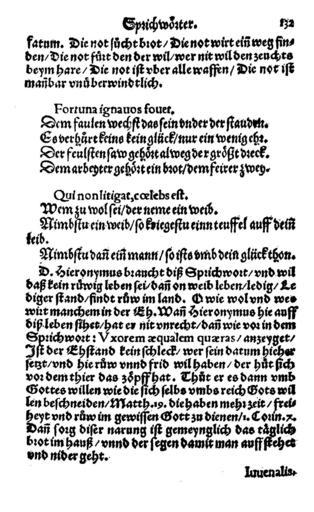 Sprichwörter. 132
fatum. Die not sůcht brot/Die not wirt ein̄ weg fin⸗
den/Die not fürt den der wil/wer nit wil den zeuchts
beym hare/ Die not ist vber alle waffen/ Die not ist
man̄bar vnüberwindtlich.
Fortuna ignauos fouet.
Dem faulen wechst das sein vnder der stauden.
Es verhürt keins kein glück/nur ein wenig ehr.
Der feulsten saw gehört alweg der gröszt dreck.
Dem arbeyter gehört ein brot/dem feirer zwey.
Qui non litigat, cœlebs est.
Wem zu wol sei/der neme ein weib.
Nimbstu ein weib/so kriegestu einn teuffel auff dein̄
leib.
Nimbstu dan̄ ein mann/so ists vmb dein glück thon.
D. Hieronymus braucht diß Sprichwort/vnd wil
daß kein růwig leben sei/dan̄ on weib leben/ledig/Le
diger stand/findt růw im land. O wie wol vnd we⸗
wirt manchem in der Eh. Wan̄ Hieronymus hie auff
diß leben sthet/hat er nit vnrecht/dan̄ wie vor in dem
Sprichwort: Vxorem æqualem quæras/ anzeyget/
Ist der Ehstand kein schleck/wer sein datum hieher
setzt/vnd hie růw vnnd frid wil haben/der hüt sich
vor dem thier das zöpff hat. Thůt er es dann vmb
Gottes willen wie die sich selbs vmbs reich Gots wil
len beschneiden/Matth.19. die haben mehr zeit/frei⸗
heyt vnd růw im gewissen Gott zu dienen/1. Corin.7.
Dan̄ sorg diser narung ist gemeynglich das täglich
brot im hauß/vnnd der segen damit man auff stehet
vnd nider geht.
Iuuenalis.